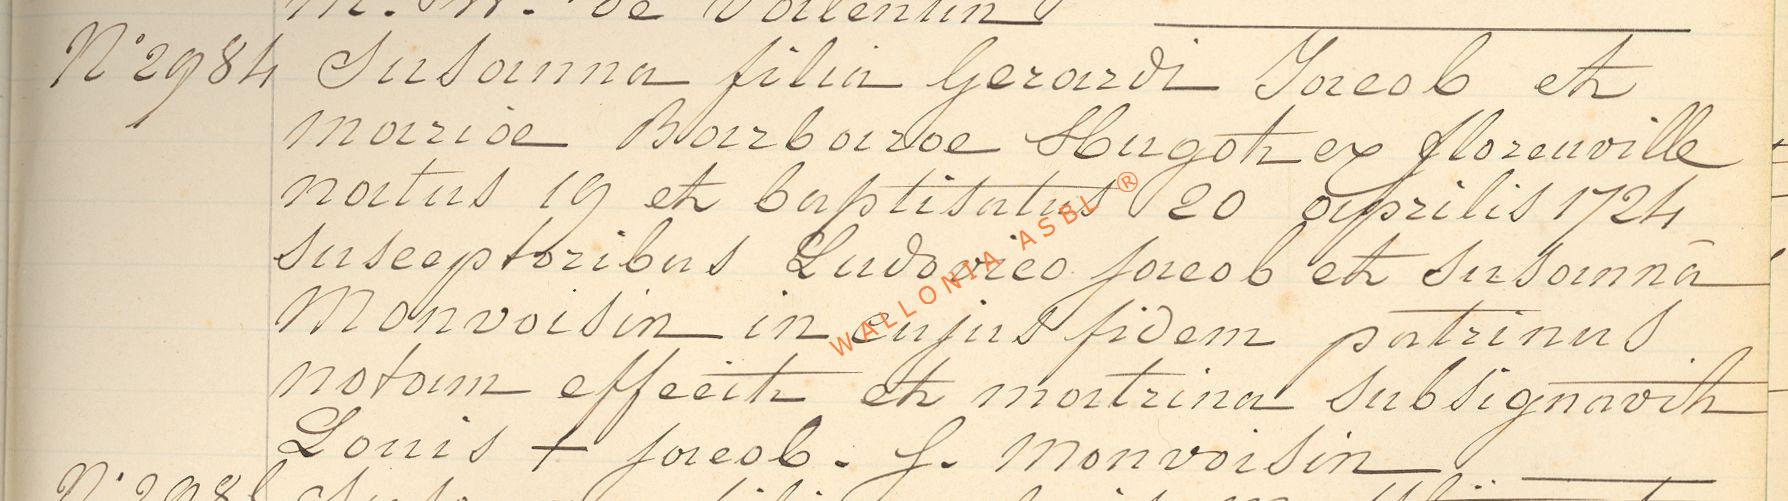 M. M. de Valentin
N° 2984 Susanna filia Gerardi Jacob et
mariae Barbarae Hugot ex florenville
natus 19 et baptisatus 20 aprilis 1724
susceptoribus Ludovico jacob et susannā
Monvoisin in cujus fidem patrinus
notam effecit et matrina subsignavit
Louis + jacob. S. Monvoisin
WALLONIA ASBL ®